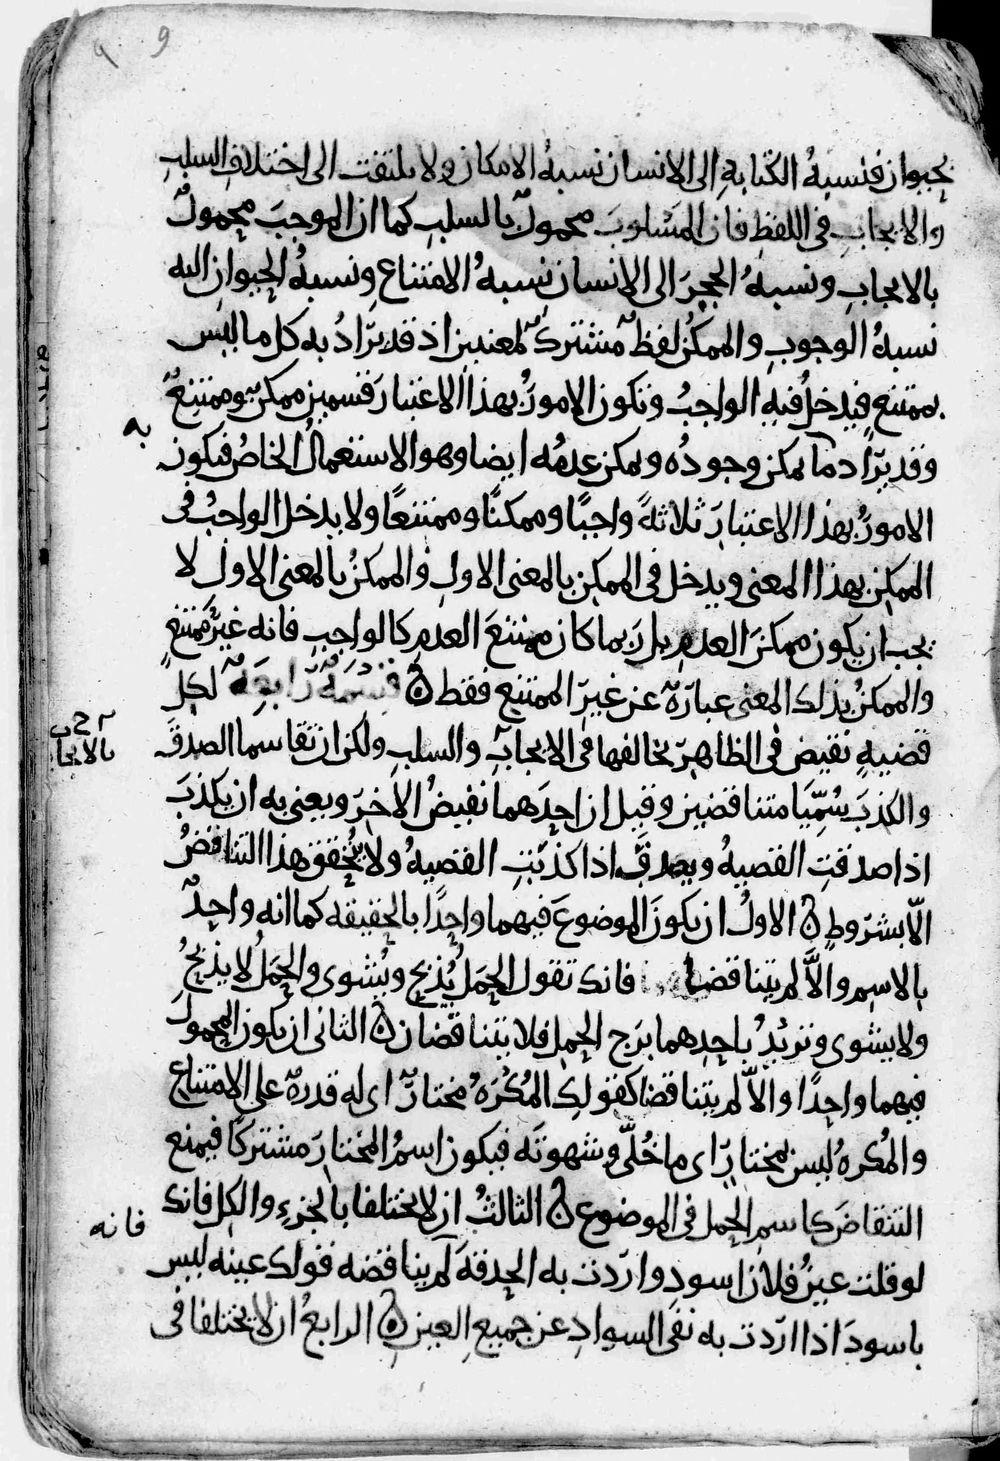 9 9
بحيوان فنسبةُ الكتابةِ الى الانسان نسبةُ الامكان ولا يلتفت الى اختلافِ السلبِ
والايجابِ فى اللفظِ فان المَسْلوبَ محمولٌ بالسلبِ كما ان الموجبَ محمولٌ
بالايجابِ ونسبةُ الحجرِ الى الانسان نسبةُ الامتناعِ ونسبةُ الحيوان اليه
نسبةُ الوجوبِ والممكنُ لفظٌ مشتركٌ لمعنيين اذ قد يرادُ به كل ما ليس
بممتنع فيدخلُ فيهِ الواجبُ وتكون الامورُ بهذا الاعتبار قسمين ممكنٌ وممتنعٌ
وقد يرادُ ما يمكن وجودُه ويمكن عدمُه ايضا وهو الاستعمالُ الخاصُ فتكون
به
الامورُ بهذا الاعتبارِ ثلاثةً واجبًا وممكنًا وممتنعًا ولا يدخل الواجبُ فى
الممكنِ بهذا المعنى ويدخل فى الممكِنِ بالمعنى الاولِ والممكنُ بالمعنى الاول لا
يجب ان يكون ممكنَ العدمِ بل ربما كان ممتنعَ العدمِ كالواجبِ فانه غيرُ ممتنعٍ
والممكنُ بذلك المعنى عبارةٌ عن غير الممتنع فقط ۞ قِسْمَةٌ رَابِعَةٌ لكلِ
قضيةٍ نقيض فى الظاهرِ يخالفها فى الايجابِ والسلبِ ولكن ان تقاسما الصدقَ
بالايجاب
والكذبَ سُمِّيَا متناقضين وقيل ان احدَهما نقيضُ الآخر ويعنى به ان يكذبَ
اذا صدقتِ القضيةُ ويصدقَ اذا كذَبَتِ القضيةُ ولا يتحقق هذا التناقضُ
الّا بشروطٍ ۞ الاولُ ان يكونَ الموضوعَ فيهما واحِدًا بالحقيقه كما انه واحدٌ
بالاسم والاَّ لم يتناقضا فانك تقول الحمَلُ يُذبح ويُشوى والحمَلُ لا يذبحُ
ولا يشوى وتريدُ باحدِهما برَج الحمِل فلا يتناقضان ۞ الثانى ان يكون المحمولُ
فيهما واحِدًا والاَّ لم يتناقضا كقولك المُكْرَهُ مختارٌ اى له قدرةٌ على الامتناعِ
والمُكرهُ ليس بمختارٍ اى ما خُلّى وشهوتَه فيكون اسمُ المختارِ مشتركًا فيمنع
التناقضَ كاسمِ الحمل فى الموضوعِ ۞ الثالثُ ان لا يختلفا بالجزءِ والكلِ فانك
فانه
لو قلت عينُ فلان اسود واردت به الحدقةَ لم يناقضه قولك عينه ليس
باسودَ اذا اردت به نفى السوادِ عن جميعِ العينِ ۞ الرابعُ ان لا يختلفا فى